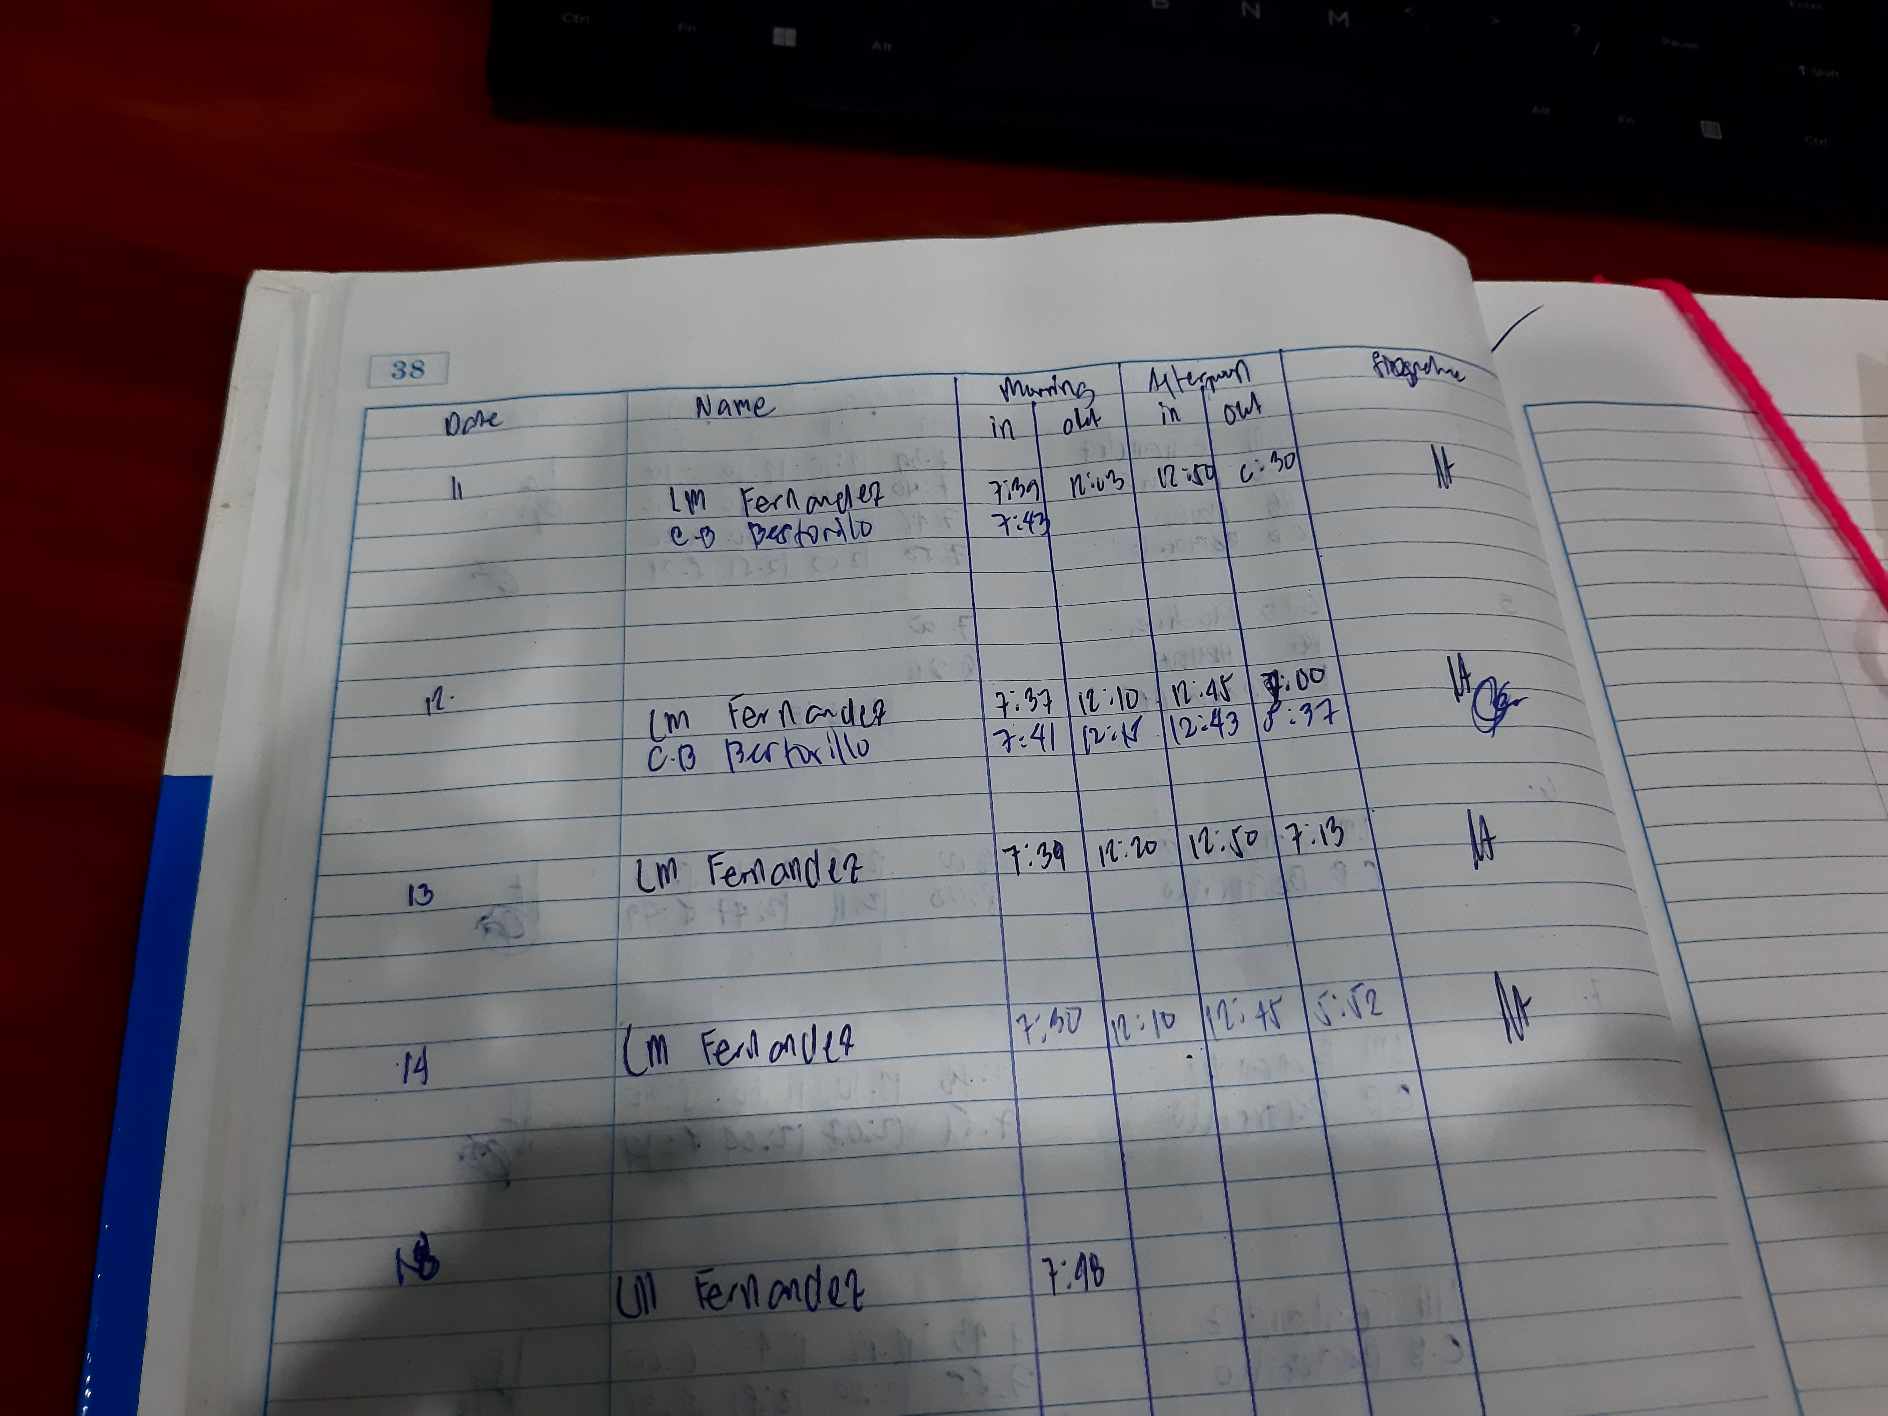 B N M
Ctrl Fn Alt
Alt Fn Ctrl
38
Date Name Morning Afternoon
in out in out
11 LM Fernandez 7:39 12:03 12:50 6:30
C.B Bertorillo 7:43
12. LM Fernandez 7:37 12:10 12:45 7:00
C.B Bertorillo 7:41 12:15 12:43 5:37
13 LM Fernandez 7:39 12:20 12:50 7:13
14 LM Fernandez 7:30 12:10 12:45 5:52
LM Fernandez 7:48